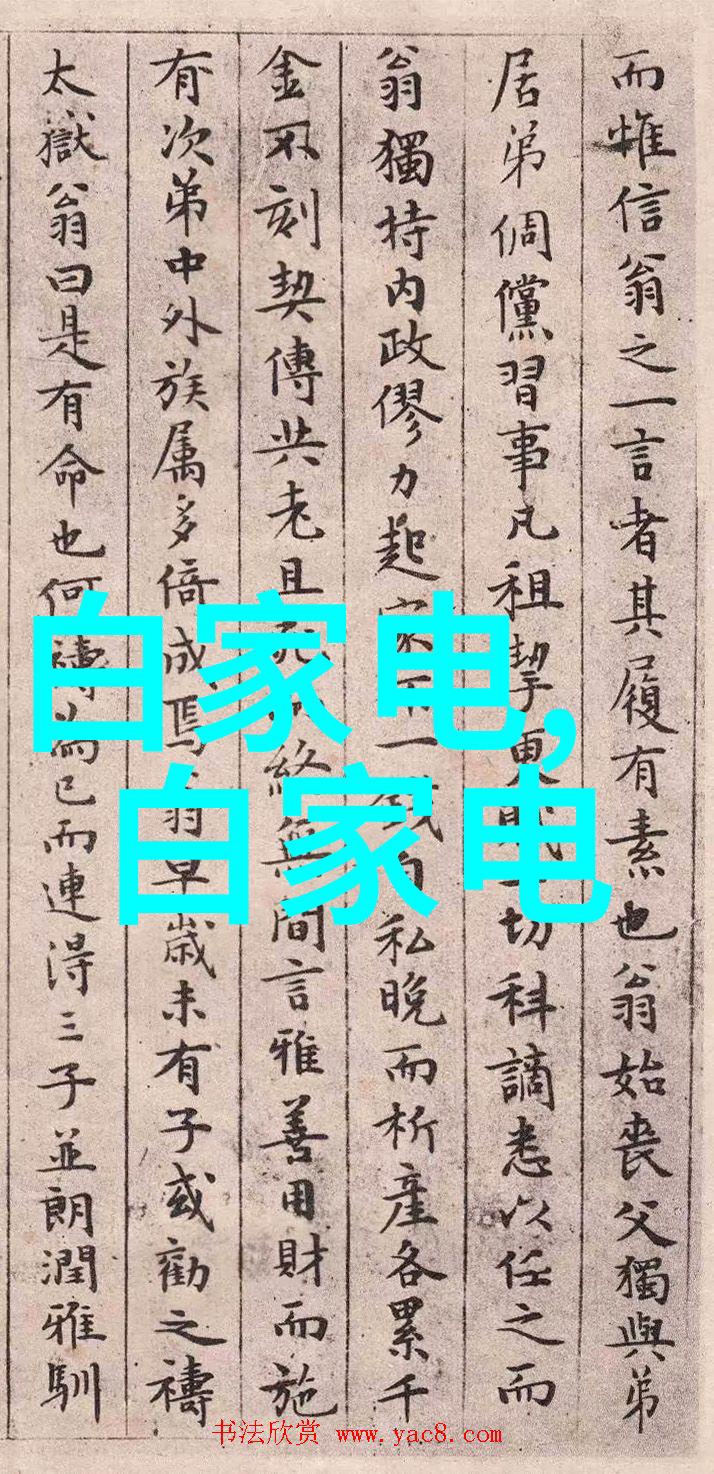 而惟信翁之一言者其履有素也翁始喪父獨與弟
居弟倜儻習事凡租挈更賦一切科謫悉以任之而
翁獨持內政僇力起家不一錢自私晚而析產各累千
金不刻契傳共老且死終無間言雅善用財而施
有次弟中外族属多倚成焉翁早歲未有子或勸之禱
太嶽翁曰是有命也何禱為已而連得三子並朗潤雅馴
白家电,
白家电
书法欣赏 www.yac8.com